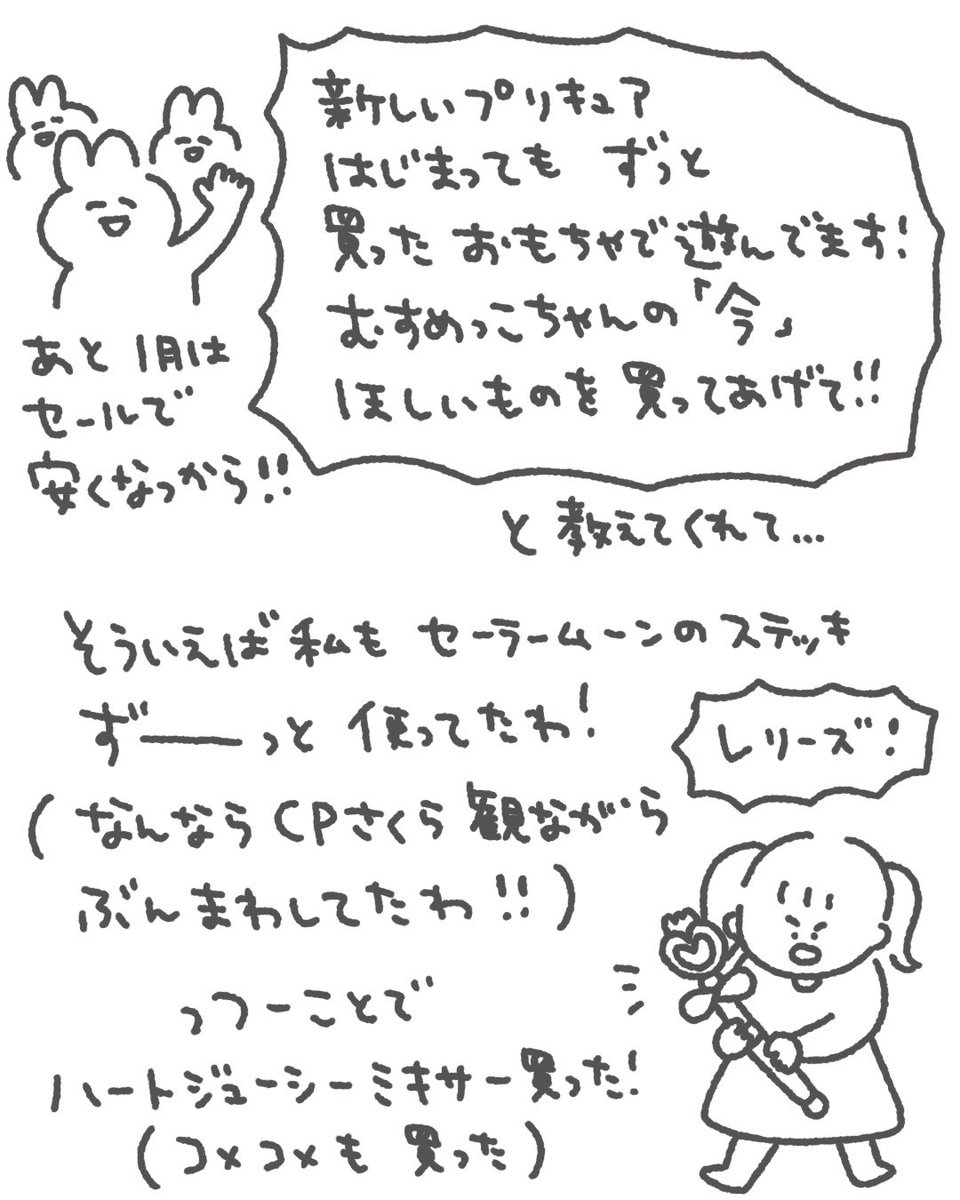 新しいプリキュア
はじまっても ずっと
買った おもちゃで遊んでます!
むすめっこちゃんの「今」
ほしいものを 買ってあげて!!
あと 1月は
セールで
安くなっから!!
と 教えてくれて...
そういえば 私も セーラームーンのステッキ
ず——っと 使ってたわ!
(なんなら CPさくら 観ながら
ぶんまわしてたわ!!)
レリーズ!
っつーことで
ハートジューシーミキサー買った!
(コメコメも 買った)